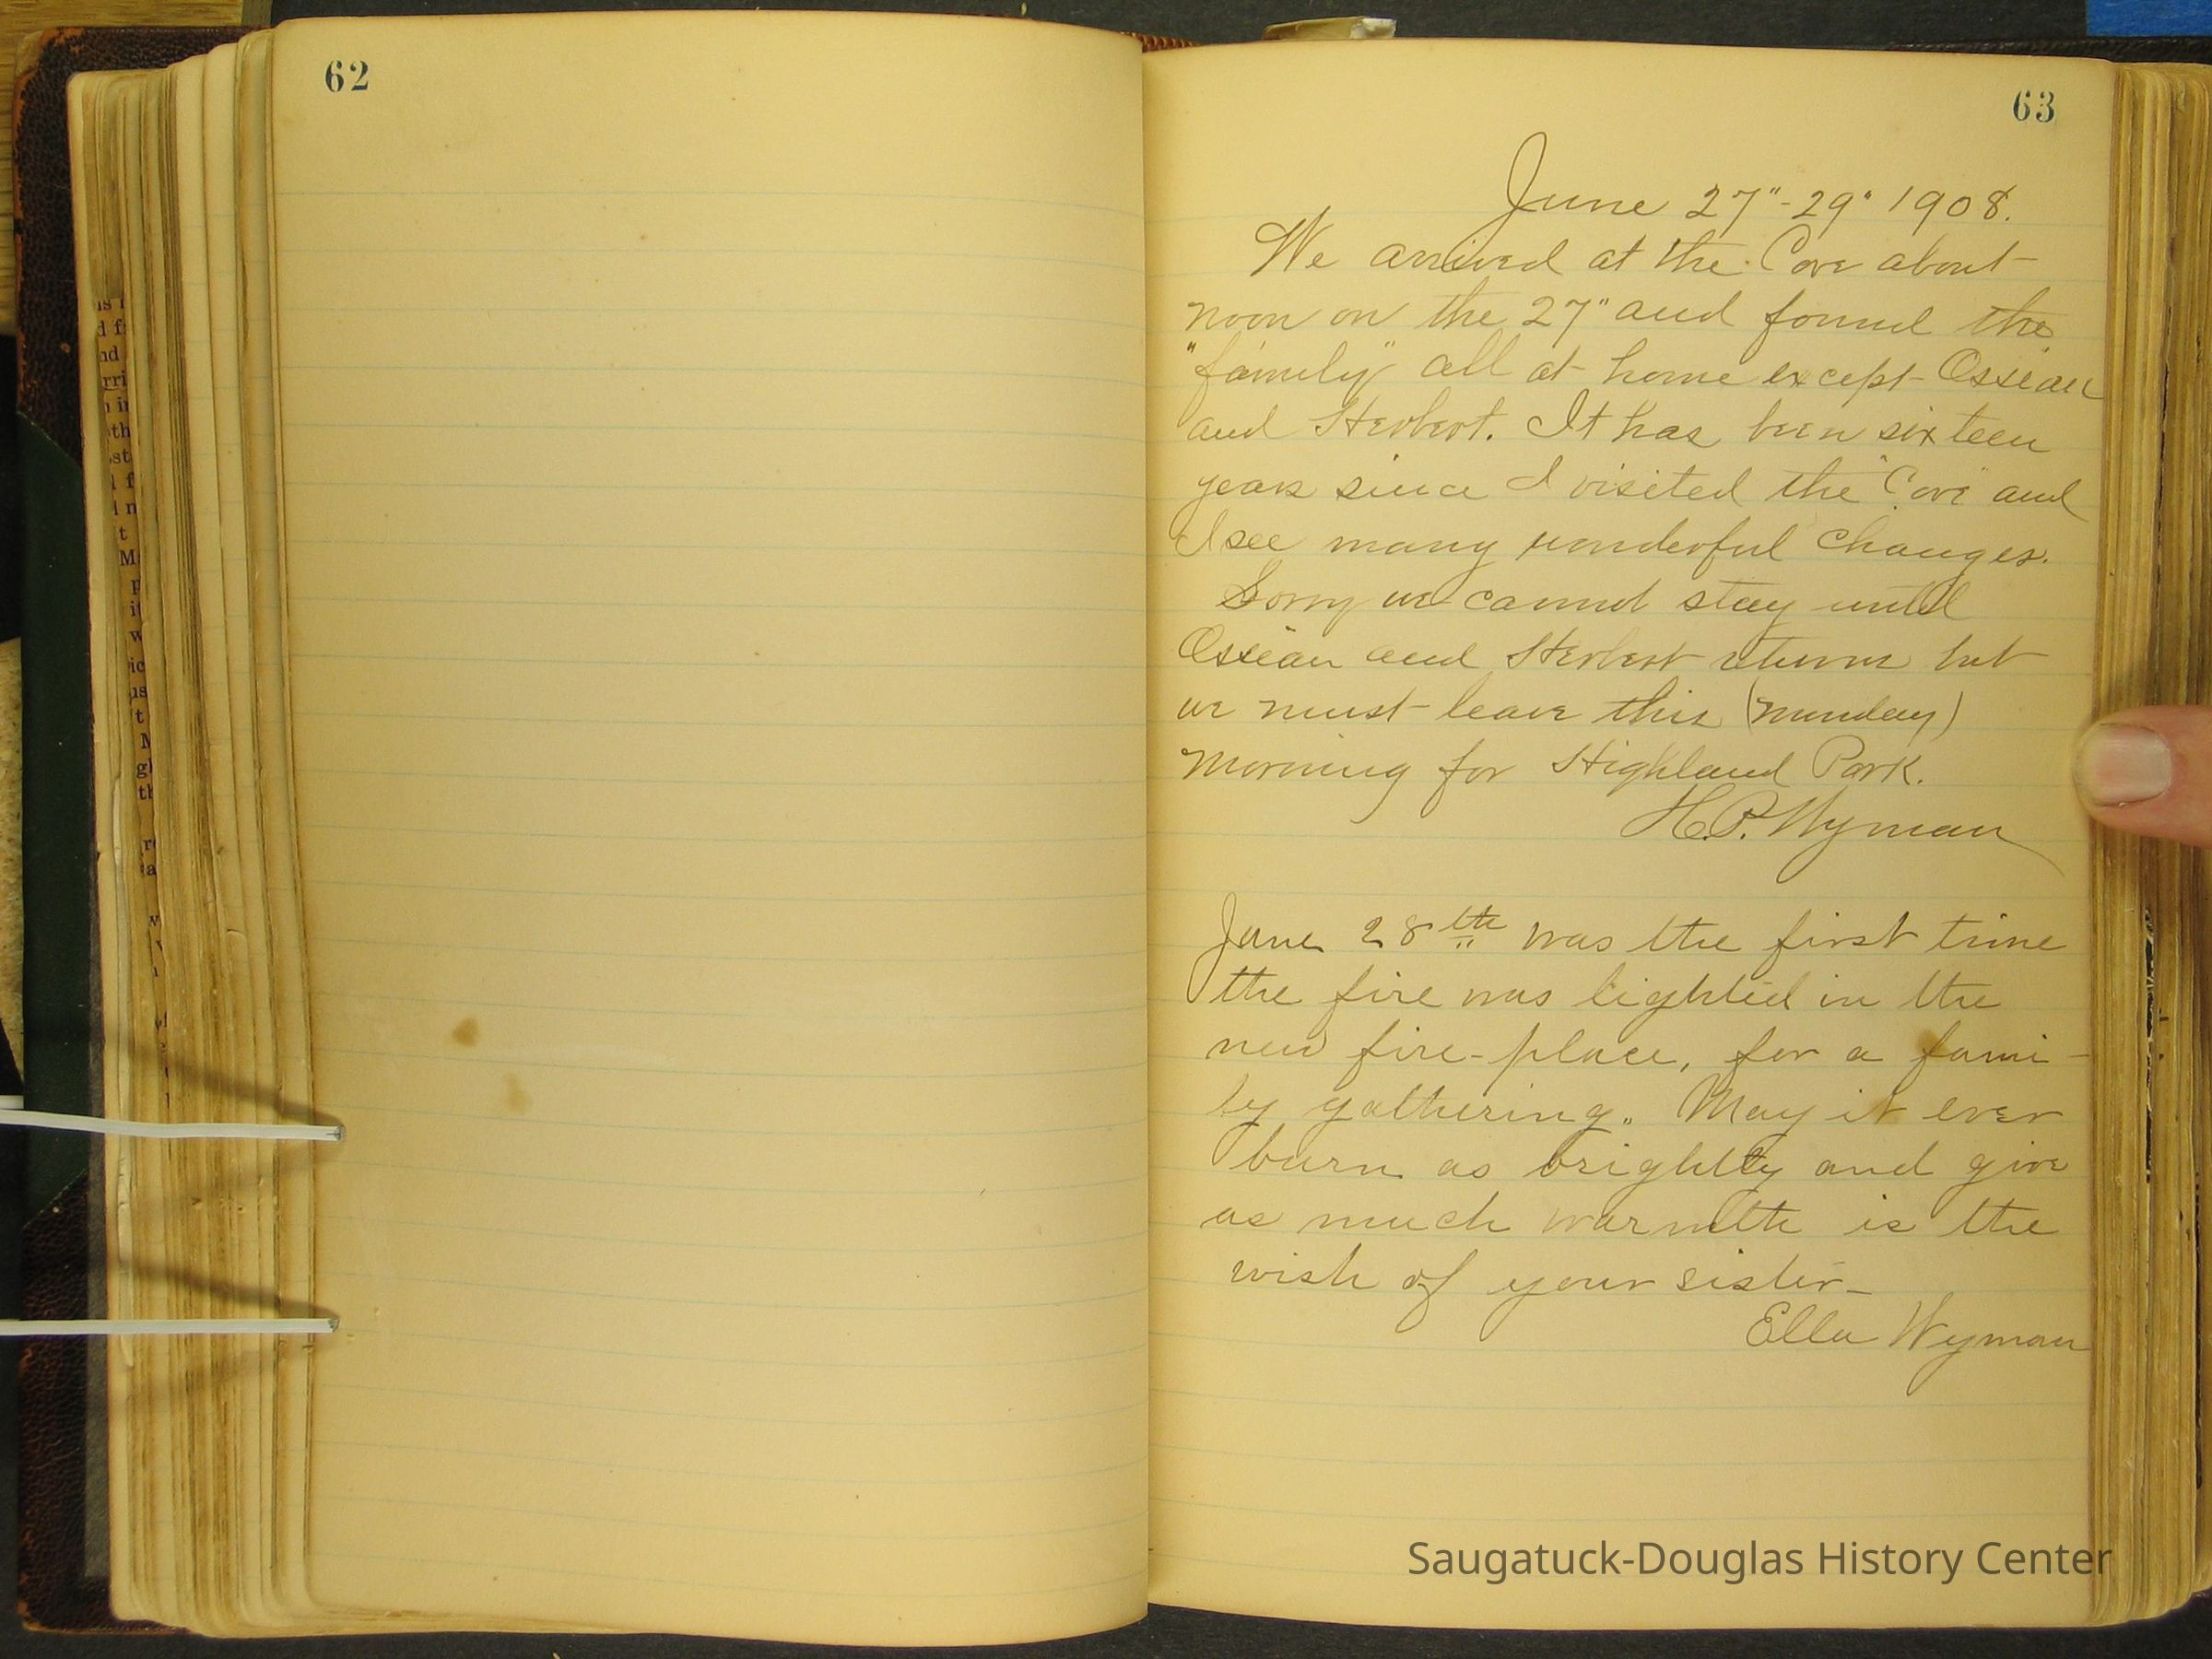 62
63
June 27"-29" 1908.
We arrived at the Cove about
noon on the 27" and found the
"family" all at home except Ossian
and Herbert. It has been sixteen
years since I visited the "Cove" and
I see many wonderful changes.
Sorry we cannot stay until
Ossian and Herbert return but
we must leave this (Monday)
morning for Highland Park.
H.P. Wyman
June 28th was the first time
the fire was lighted in the
new fire-place, for a fami-
ly gathering. May it ever
burn as brightly and give
as much warmth is the
wish of your sister-
Ella Wyman
Saugatuck-Douglas History Center